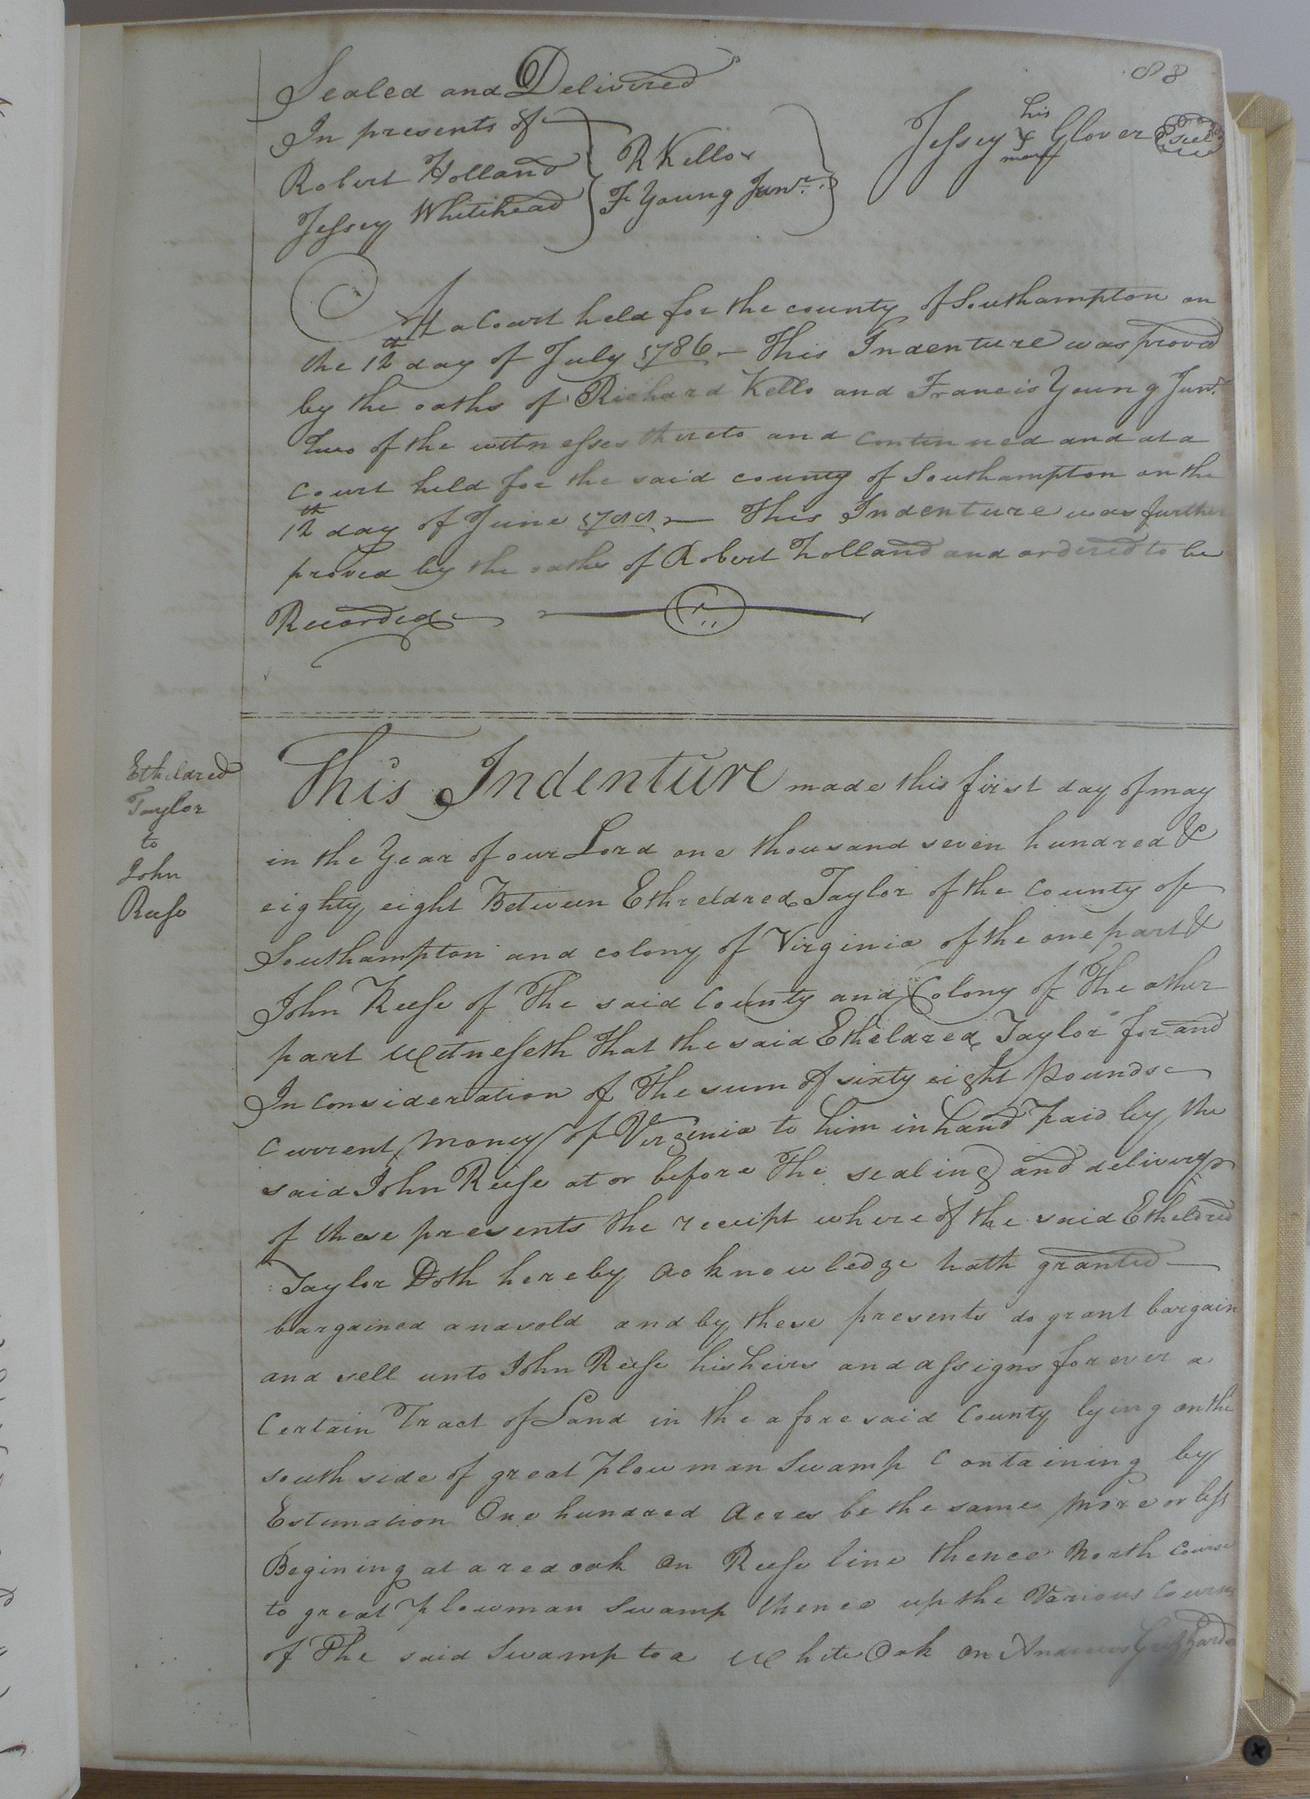 88
Sealed and Delivered
In presents of
Robert Holland
Jessey Whitehead
R Kello
F Young Junr.
his
Jessey + Glover seal
mark
At a Court held for the county of Southampton on
the 12th day of July 1786 - This Indenture was proved
by the oaths of Richard Kello and Francis Young Junr.
two of the witnesses thereto and continued and at a
court held for the said county of Southampton on the
12th day of June 1788 - This Indenture was further
proved by the oaths of Robert Holland and ordered to be
Recorded
Etheldred
Taylor
to
John
Reese
This Indenture made this first day of may
in the Year of our Lord one thousand seven hundred &
eighty eight Between Ethreldred Taylor of the County of
Southampton and colony of Virginia of the one part &
John Reese of The said County and Colony of The other
part Witnesseth That the said Etheldred Taylor for and
In consideration of The sum of sixty eight pounds
Current money of Virginia to him in hand paid by the
said John Reese at or before The sealing and delivery
of these presents the receipt where of the said Etheldred
Taylor Doth hereby acknowledge hath granted
bargained and sold and by these presents do grant bargain
and sell unto John Reese his heirs and assigns forever a
Certain Tract of Land in the aforesaid County lying on the
south side of great plowman Swamp Containing by
Estimation One hundred Acres be the same more or less
Begining at a red oak On Reese line thence North Course
to great plowman Swamp thence up the Various Courses
of The said Swamp to a White Oak on Andrews